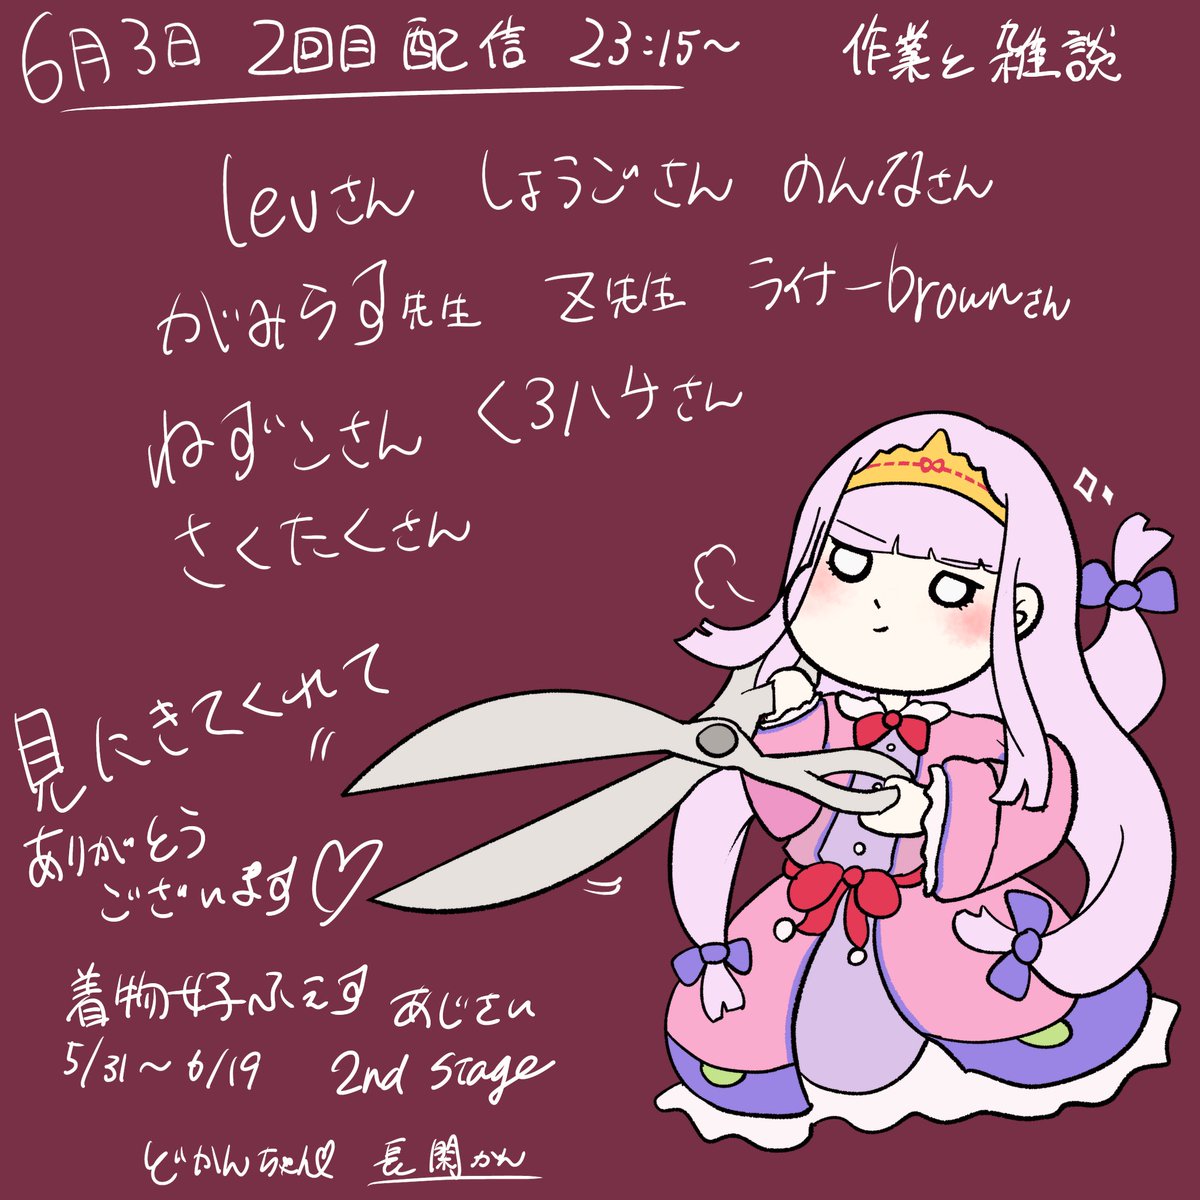 6月3日 2回目 配信 23:15～ 作業と雑談
levさん しょうごさん のんなさん
がみらす先生 Z先生 ライナーbrownさん
ねずこさん くろハケさん
さくたくさん
見にきてくれて
ありがとう
ございます♡
着物好ふぇす あじさい
5/31～6/19 2nd Stage
どかんちゃん♡